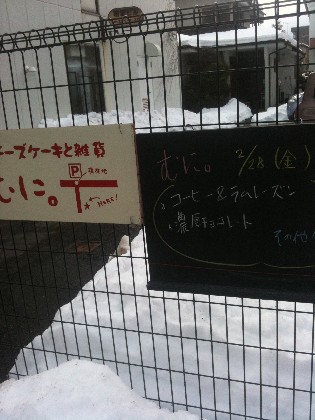 ーズケーキと雑貨
むに。
P 現在地
HERE!
むに。 2/28(金)
コーヒー&ラムレーズン
濃厚チョコレート
そのた